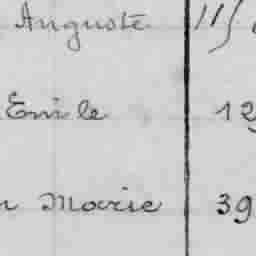 Auguste 115
Emile 12
Marie 39